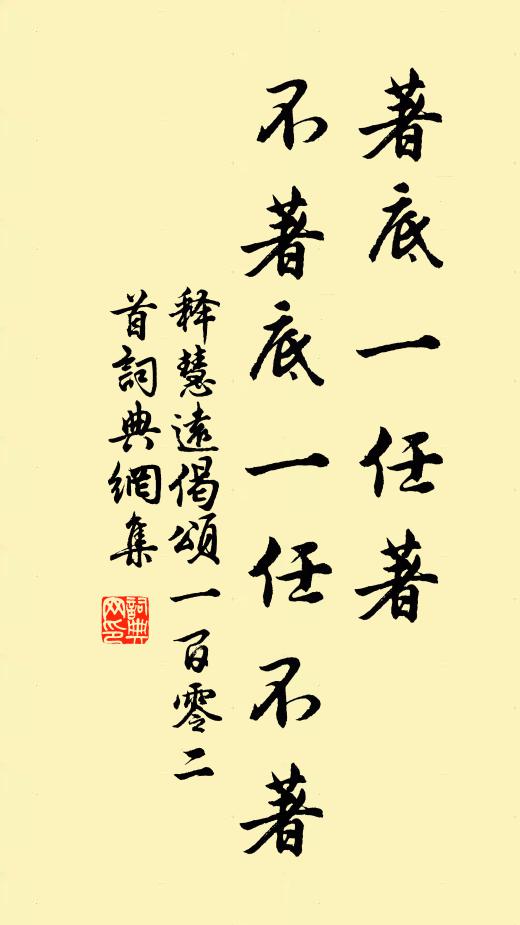 著底一任著
不著底一任不著
释慧遠偈頌一百零二
首詞典網集
詞典
网印